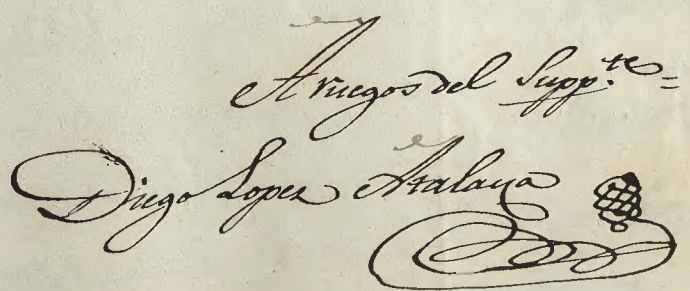 A ruegos del Supp.te =
Diego Lopez Atalaya